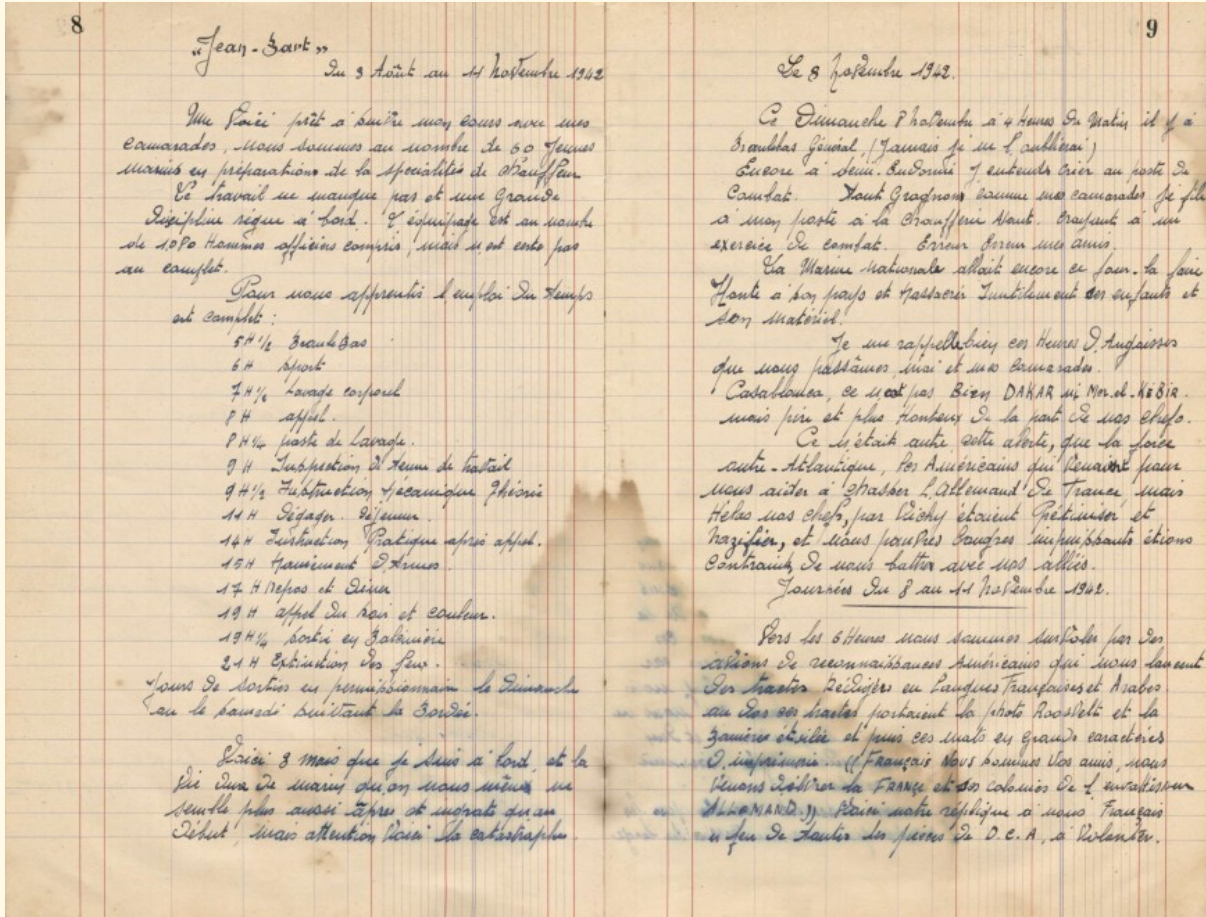 8
"Jean-Bart"
Du 3 Août au 11 Novembre 1942
Me Voici prêt a suivre mon cours avec mes
camarades, nous sommes au nombre de 60 Jeunes
marins en préparations de la spécialités de chauffeur
Le travail ne manque pas et une Grande
Discipline règne a' bord. L'équipage est au nombre
de 1.080 Hommes officiers compris, mais n'est pas
au complet.
Pour nous apprentis l'emploi du temps
est complet :
5 H ½ BranleBas
6 H sport
7 H ½ Lavage corporel
8 H appel.
8 H ¼ poste de Lavage.
9 H Inspection de tenue de travail
9 H ½ Instruction Mécanique Théorie
11 H Dégager. Déjeuner.
14 H Instruction Pratique après appel.
15 H Maniement D'Armes.
17 H Repos et Diner
19 H appel du soir et couleur.
19 H ¼ sortie en Baleinière
21 H Extinction des feux.
Jours de sorties en permissionnaire le Dimanche
ou le samedi suivant la Bordée.
Voici 3 mois que je suis a bord, et la
Vie dure de marin qu'on nous mène ne
semble plus aussi âpre et ingrate qu'au
Début, mais attention Voici la catastrophe.
9
Le 8 Novembre 1942.
Ce Dimanche 8 Novembre a 4 Heures du Matin il y a
Branlebas Général, (Jamais je ne l'oublierai)
Encore a demi-Endormi J'entends crier au poste de
Combat. Tout Grognons comme mes camarades je file
a mon poste a la chaufferie Avant. croyant a un
exercice de combat. Erreur Erreur mes amis.
La Marine Nationale allait encore ce jour-la faire
Honte a son pays et Massacrer Inutilement ses enfants et
son matériel.
Je me rappelle bien ces Heures D'Angoisses
que nous passâmes, moi et mes camarades.
Casablanca, ce n'est pas Bien DAKAR ni Mer-el-KéBIR.
mais pire et plus honteux de la part de nos chefs.
Ce n'était autre cette alerte, que la force
outre-Atlantique, Les Américains qui Venaient pour
nous aider à chasser L'Allemand de France, mais
Helas nos chefs, par Vichy étaient Pétiniser et
Nazifier, et nous pauvres bougres impuissants étions
Contraints de nous battre avec nos alliés.
Journées du 8 au 11 Novembre 1942.
Vers les 6 Heures nous sommes survoler par des
avions de reconnaissances Américains qui nous lancent
Des tractes Rédigées en Langues Françaises et Arabes.
au dos ces tractes portaient la photo RoosVelt et la
Banière étoilée et puis ces mots en grands caractères
D'imprimerie. ((FRANçais Nous sommes Vos amis, nous
Venons délivrer la FRANCE et ses colonies de l'envahisseur
ALLEMAND.)) Voici notre réplique a nous Français
un feu de toutes les pièces de D.C.A, a Volonter.